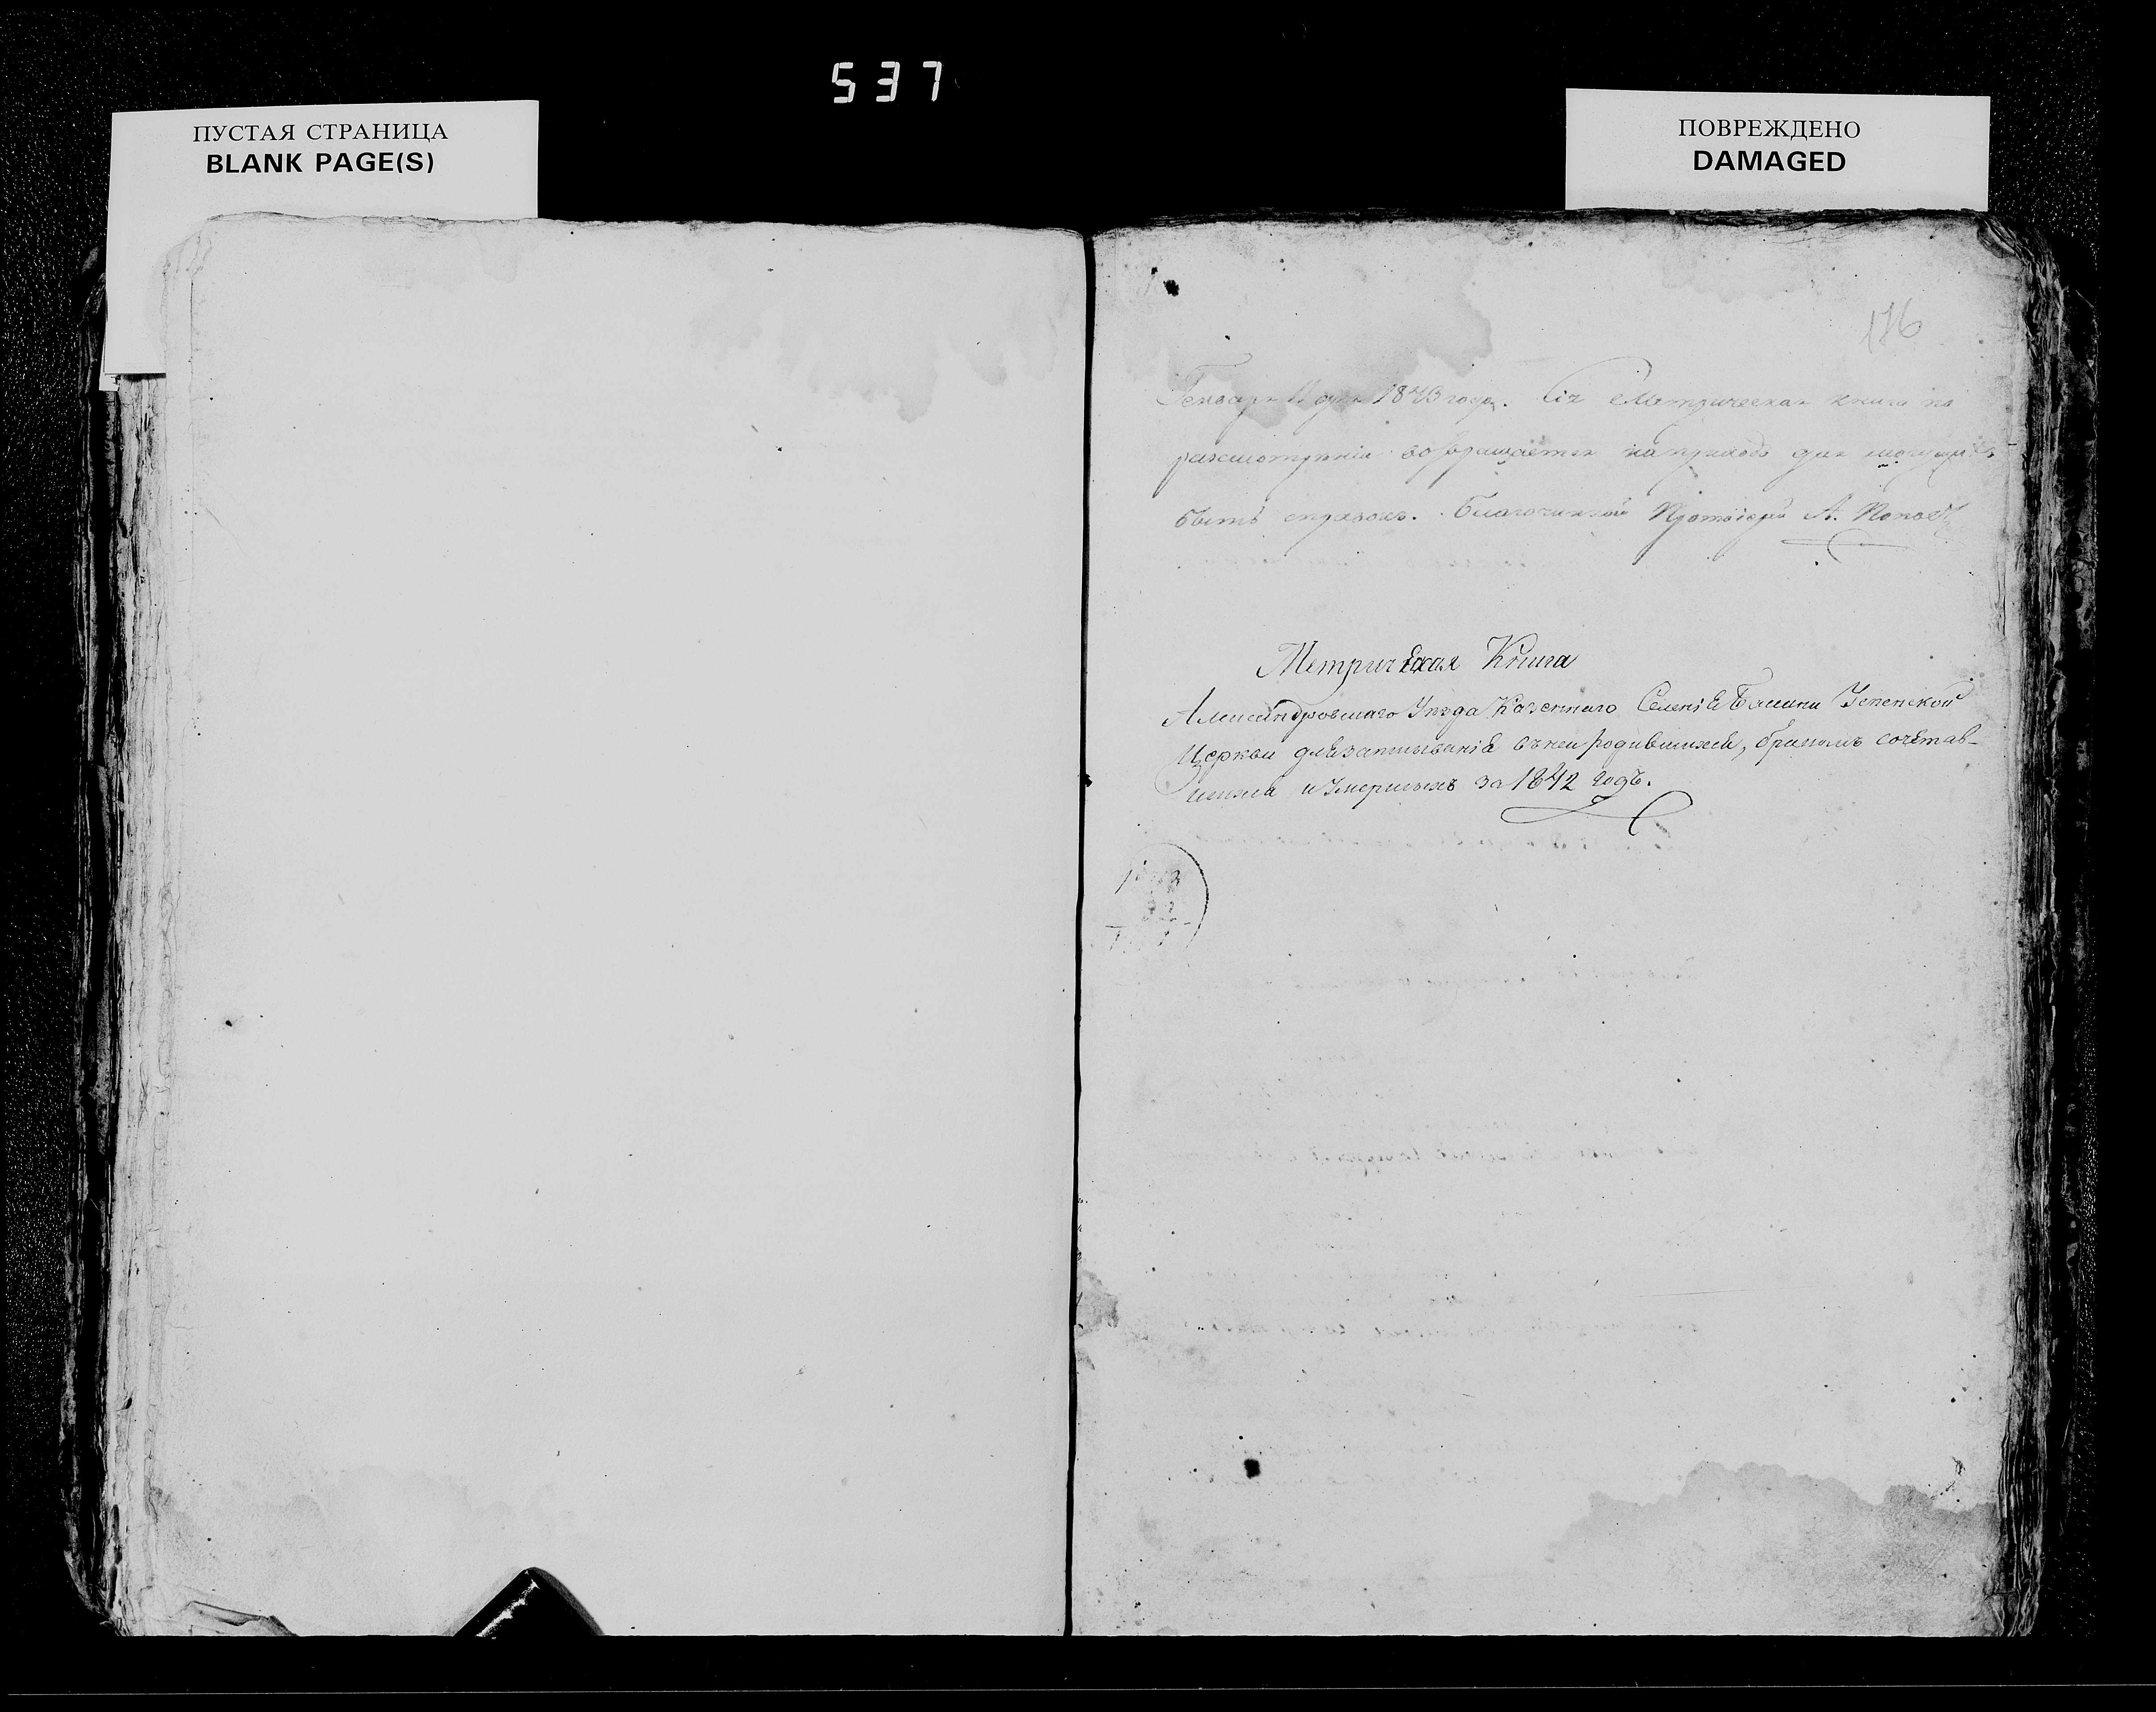 537
ПУСТАЯ СТРАНИЦА
BLANK PAGE(S)
ПОВРЕЖДЕНО
DAMAGED
176
Генваря 11 дня 1843 года. Сія Метрическая книга по
разсмотрѣніи возвращается на приходъ для могущихъ
быть справокъ. Благочинный Протоіерей А. Поповъ
Метрическая Книга
Александровскаго Уѣзда Казеннаго Селенія Башини Успенской
Церкви для записыванія въ ней родившихся, бракомъ сочетав-
шихся и Умершихъ за 1842 годъ.